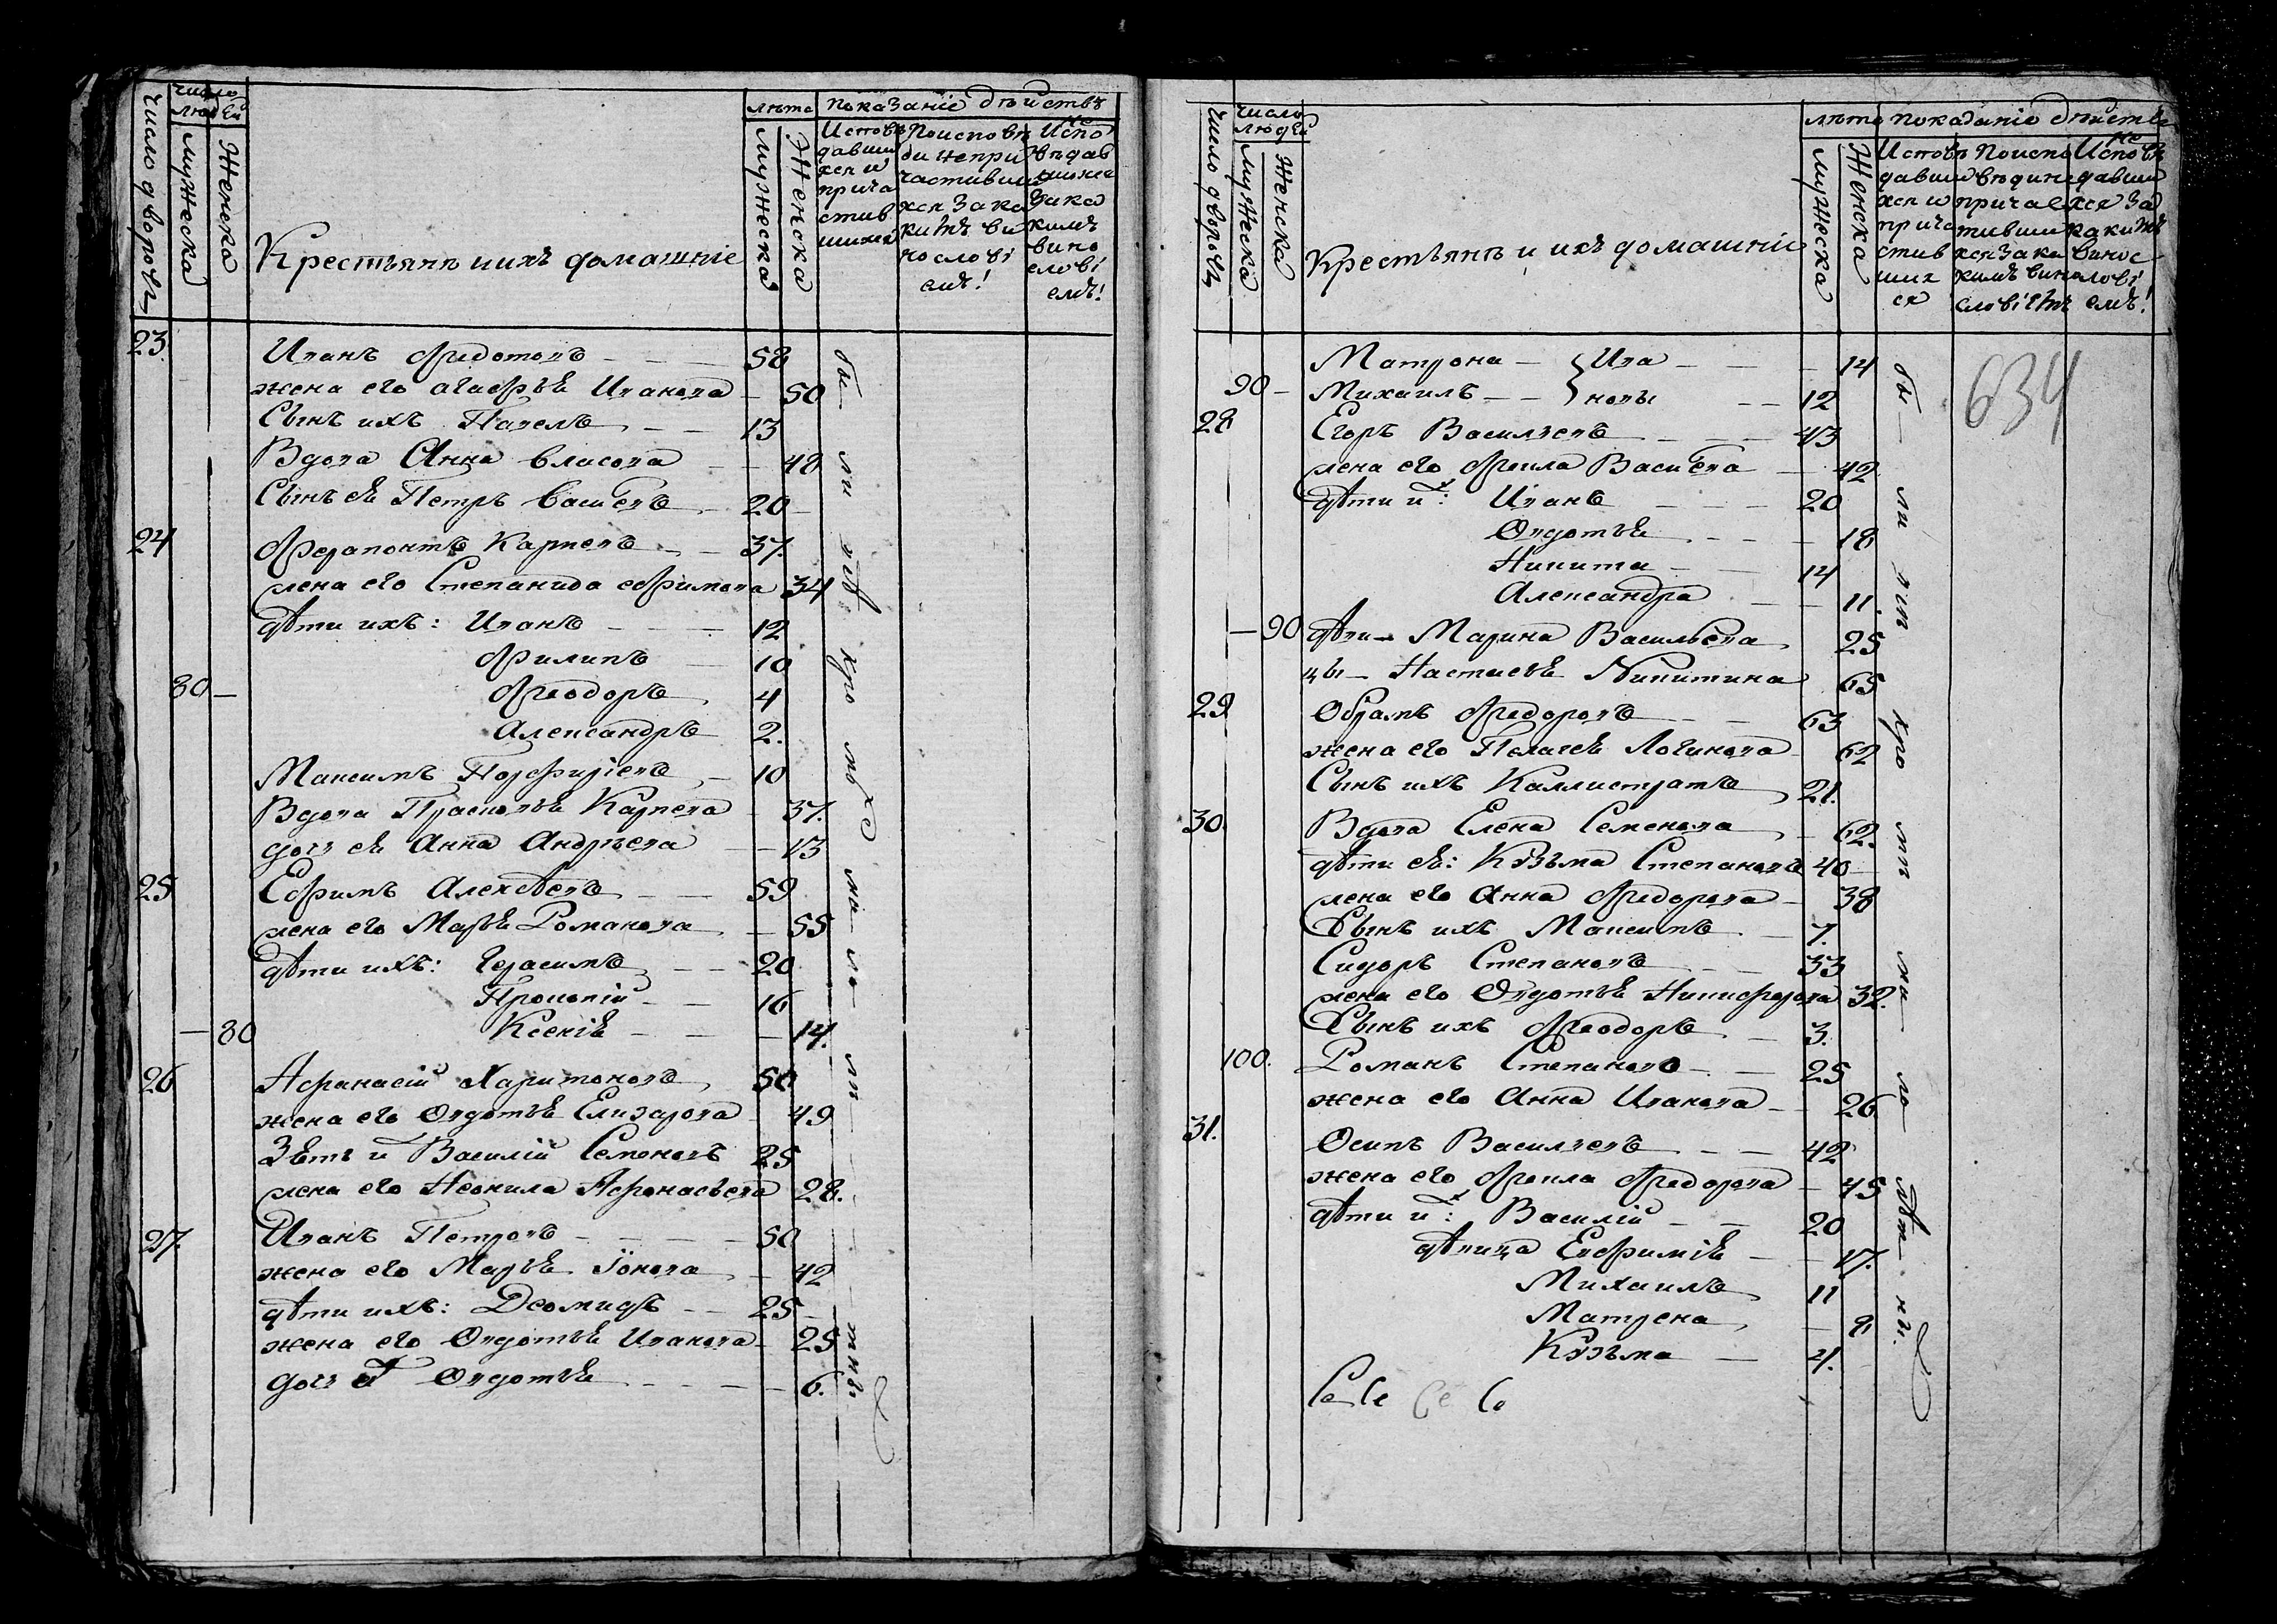 число дворовъ
число людей
мужеска
женска
Крестьянѣ и ихъ домашніе
лѣта
мужеска
женска
показаніе дѣйствъ
Исповѣдавшихся и причастившихся
По исповѣди не причастившихся за какимъ винословіемъ!
Не исповѣдавшихся за какимъ винословіемъ!
23. Иванъ Ѳедотовъ 58
жена его Агафья Иванова 50
Сынъ ихъ Павелъ 13
Вдова Анна Власова 48
Сынъ ея Петръ 20
24 Ѳерапонтъ Карпевъ 37.
жена его Степанида Ефимова 34
дѣти ихъ: Иванъ 12
Филипъ 10
80 Ѳеодоръ 4
Александръ 2.
Максимъ Порфиріевъ 10
Вдова Прасковья Карпева 37.
дочь ея Анна Андрѣева 13
25 Ефимъ Алексѣевъ 59
жена его Марья Романова 55
дѣти ихъ: Герасимъ 20
Прокопій 16
80 Ксенія 14.
26 Афанасій Харитоновъ 50
жена его Овдотья Елизарова 49
Зять и Василій Семеновъ 25
жена его Неонила Афонасьева 28.
27. Иванъ Петровъ 50
жена его Марья Іонова 42
дѣти ихъ: Деомидъ 25
жена его Овдотья Иванова 25
дочь Овдотья 6.
бы ли всѣ кро мѣ ма ло лѣ тнь
число дворовъ
число людей
мужеска
женска
Крестьянъ и ихъ домашніе
лѣта
мужеска
женска
показаніе дѣйствъ
Исповѣдавшихся и причастившихся
По исповѣди не причастившихся за какимъ винословіемъ
Не исповѣдавшихся за какимъ винословіемъ!
634
Матрона } Ива 14
90 Михаилъ } новы 12
28 Егоръ Васильевъ 43
жена его Ѳекла 42
дѣти их: Иванъ 20
Овдотья 18
Никита 14
Александра 11.
90 дѣви Марина Васильева 25
цы Настасья Никитина 65
29 Обрамъ Ѳедоровъ 63
жена его Пелагея Логинова 62
Сынъ ихъ Каллистратъ 21.
30. Вдова Елена Семенова 62.
дѣти ея: Кузьма Степановъ 40
жена его Анна Ѳедорова 38
Сынъ ихъ Максимъ 7.
Сидоръ Степановъ 33
жена его Овдотья Никифорова 32.
Сынъ ихъ Ѳеодоръ 3.
100. Романъ Степановъ 25
жена его Анна Иванова 26
31. Осипъ Васильевъ 42
жена его Ѳекла Ѳедорова 45
дѣти их: Василій 20
дѣвица Евфимія 17.
Михаилъ 11
Матрена 8
Кузьма 4.
бы ли кро мѣ ма ло лѣт нь.